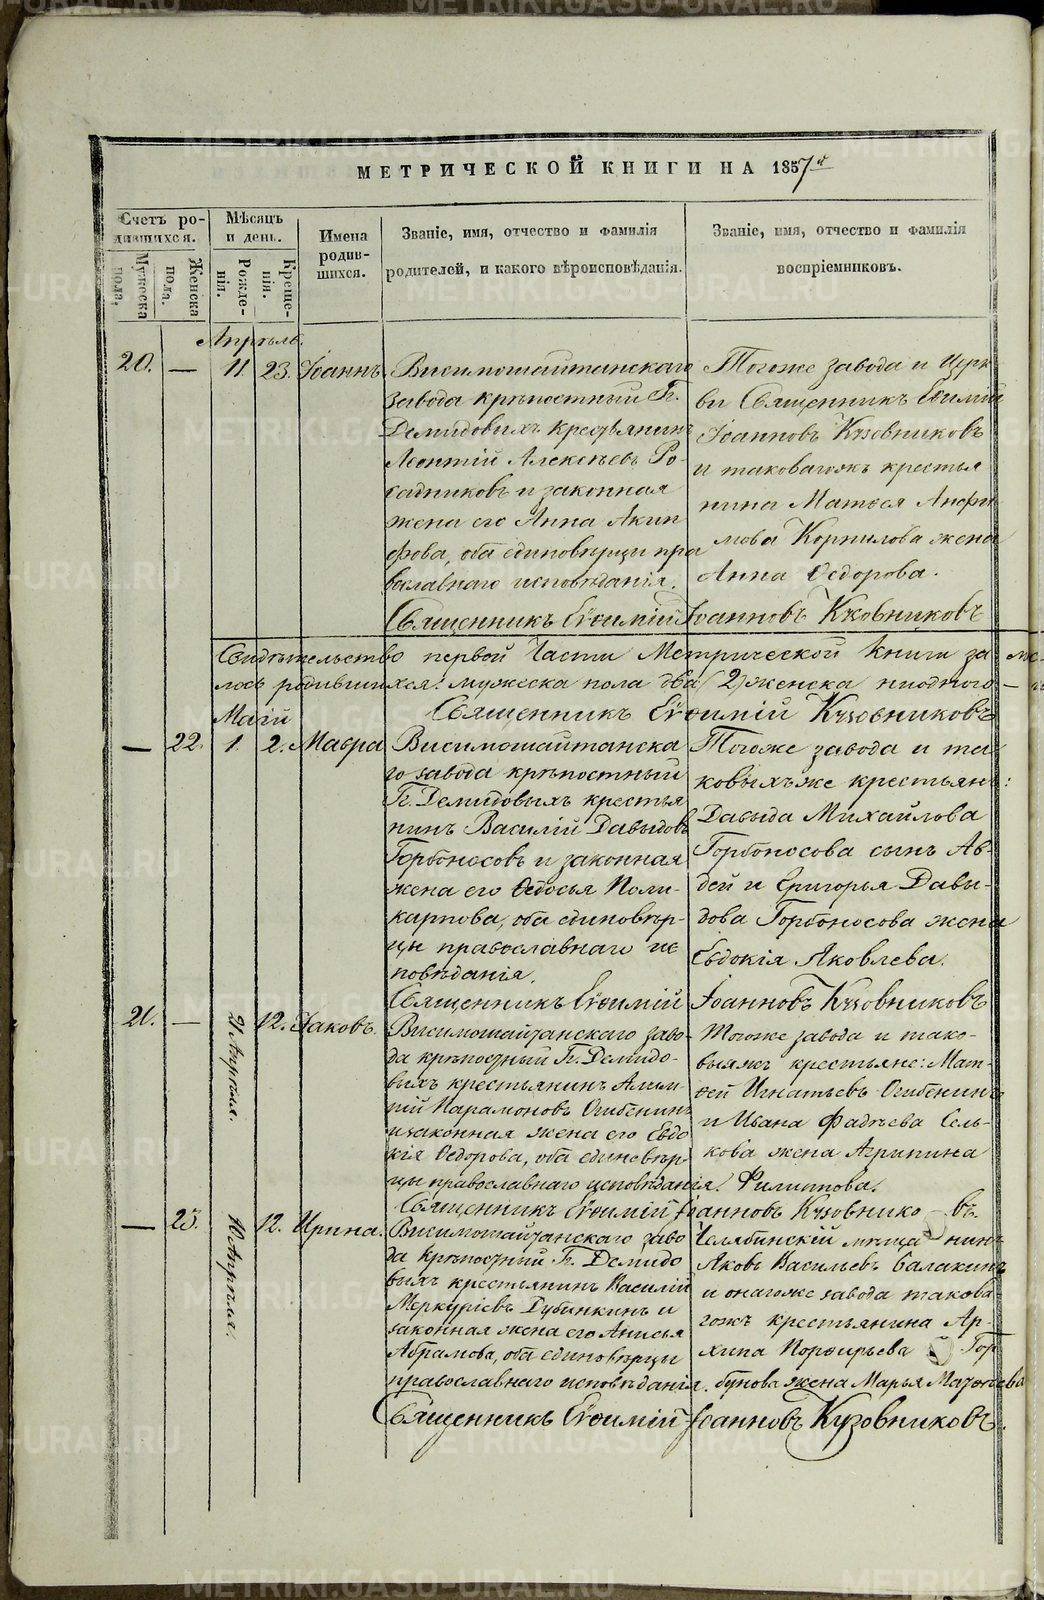 МЕТРИЧЕСКОЙ КНИГИ НА 1857й
Счетъ ро-
дившихся.
Мѣсяцъ
и день.
Имена
родив-
шихся.
Званіе, имя, отчество и фамилія
родителей, и какого вѣроисповѣданія.
Званіе, имя, отчество и фамилія
воспріемниковъ.
Мужеска
пола.
Женска
пола.
Рожде-
нія.
Креще-
нія.
Апрѣль.
20. — 11 23. Іоаннъ
Висимошайтанскаго
завода крѣпостный Гг.
Демидовыхъ крестьянинъ
Леонтій Алексѣевъ Ро-
садниковъ и законная
жена его Анна Акин
фова, оба единовѣрцы пра
вславнаго исповѣданія.
Тогоже завода и Церк
ви Священникъ Евѳимій
Іоанновъ Кузовниковъ
и таковагожъ крестья
нина Матѳея Анфи
мова Корнилова жена
Анна Ѳедорова.
Священникъ Евѳимій Іоанновъ Кузовниковъ
Свидѣтельство первой Части Метрической книги за
лось родившихся: мужеска пола два (2) женска ниодного —
Священникъ Евѳимій Кузовниковъ
Маій
— 22. 1. 2. Мавра
Висимошайтанска
го завода крѣпостный
Гг. Демидовыхъ крестья
нинъ Василій Давыдовъ
Горбоносовъ и законная
жена его Ѳедосья Поли-
карпова, оба единовѣр-
цы православнаго ис
повѣданія.
Тогоже завода и та
ковыхъже крестьянъ:
Давыда Михайлова
Горбоносова сынъ Ав-
дей и Григорья Давы-
дова Горбоносова жена
Евдокія Яковлева.
Священникъ Евѳимій Іоанновъ Кузовниковъ
21. — 21 Апрѣля. 12. Іаковъ.
Висимошайтанскаго заво-
да крѣпостный Гг. Демидо-
выхъ крестьянинъ Алим-
пій Парамоновъ Огибенинъ
и законная жена его Евдо
кія Ѳедорова, оба единовѣр
цы православнаго исповѣданія.
Тогоже завода и тако-
выяжъ крестьяне: Мат-
ѳей Игнатьевъ Огибенинъ
и Ивана Фадѣева Сель-
кова жена Агрипина
Филиппова.
Священникъ Евѳимій Іоанновъ Кузовниковъ
— 23. 10 Апрѣля. 12. Ирина.
Висимошайтанскаго заво
да крѣпостный Гг. Демидо
выхъ крестьянинъ Василій
Меркуріевъ Дубинкинъ и
законная жена его Анисья
Абрамова, оба единовѣрцы
православнаго исповѣданія.
Челябинскій мѣщанинъ
Яковъ Васильевъ Балакинъ
и онагоже завода такова
гожъ крестьянина Ар-
хипа Порфирьева Гор
бунова жена Марья Матѳѣева
Священникъ Евѳимій Іоанновъ Кузовниковъ.
METRIKI.GASO-URAL.RU